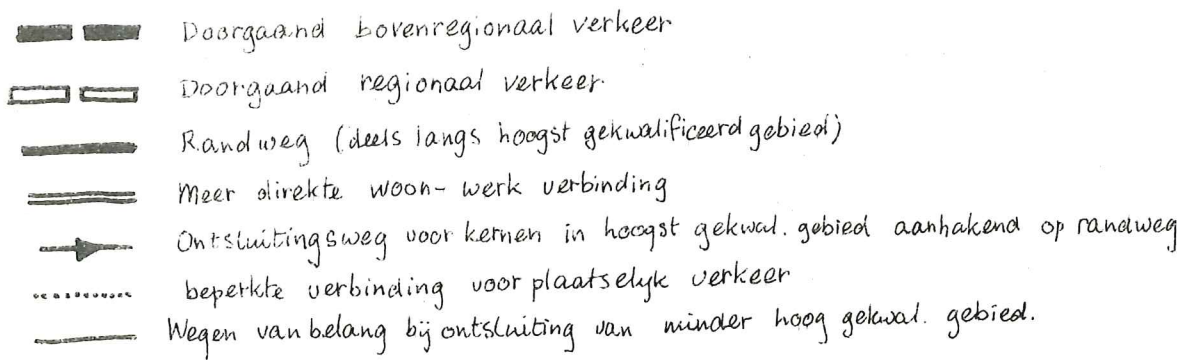 Doorgaand bovenregionaal verkeer
Doorgaand regionaal verkeer
Randweg (deels langs hoogst gekwalificeerd gebied)
Meer direkte woon-werk verbinding
Ontsluitingsweg voor kernen in hoogst gekwal. gebied aanhakend op randweg
beperkte verbinding voor plaatselyk verkeer
Wegen van belang bij ontsluiting van minder hoog gekwal. gebied.